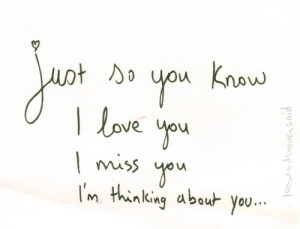 just so you know
I love you
I miss you
I'm thinking about you...